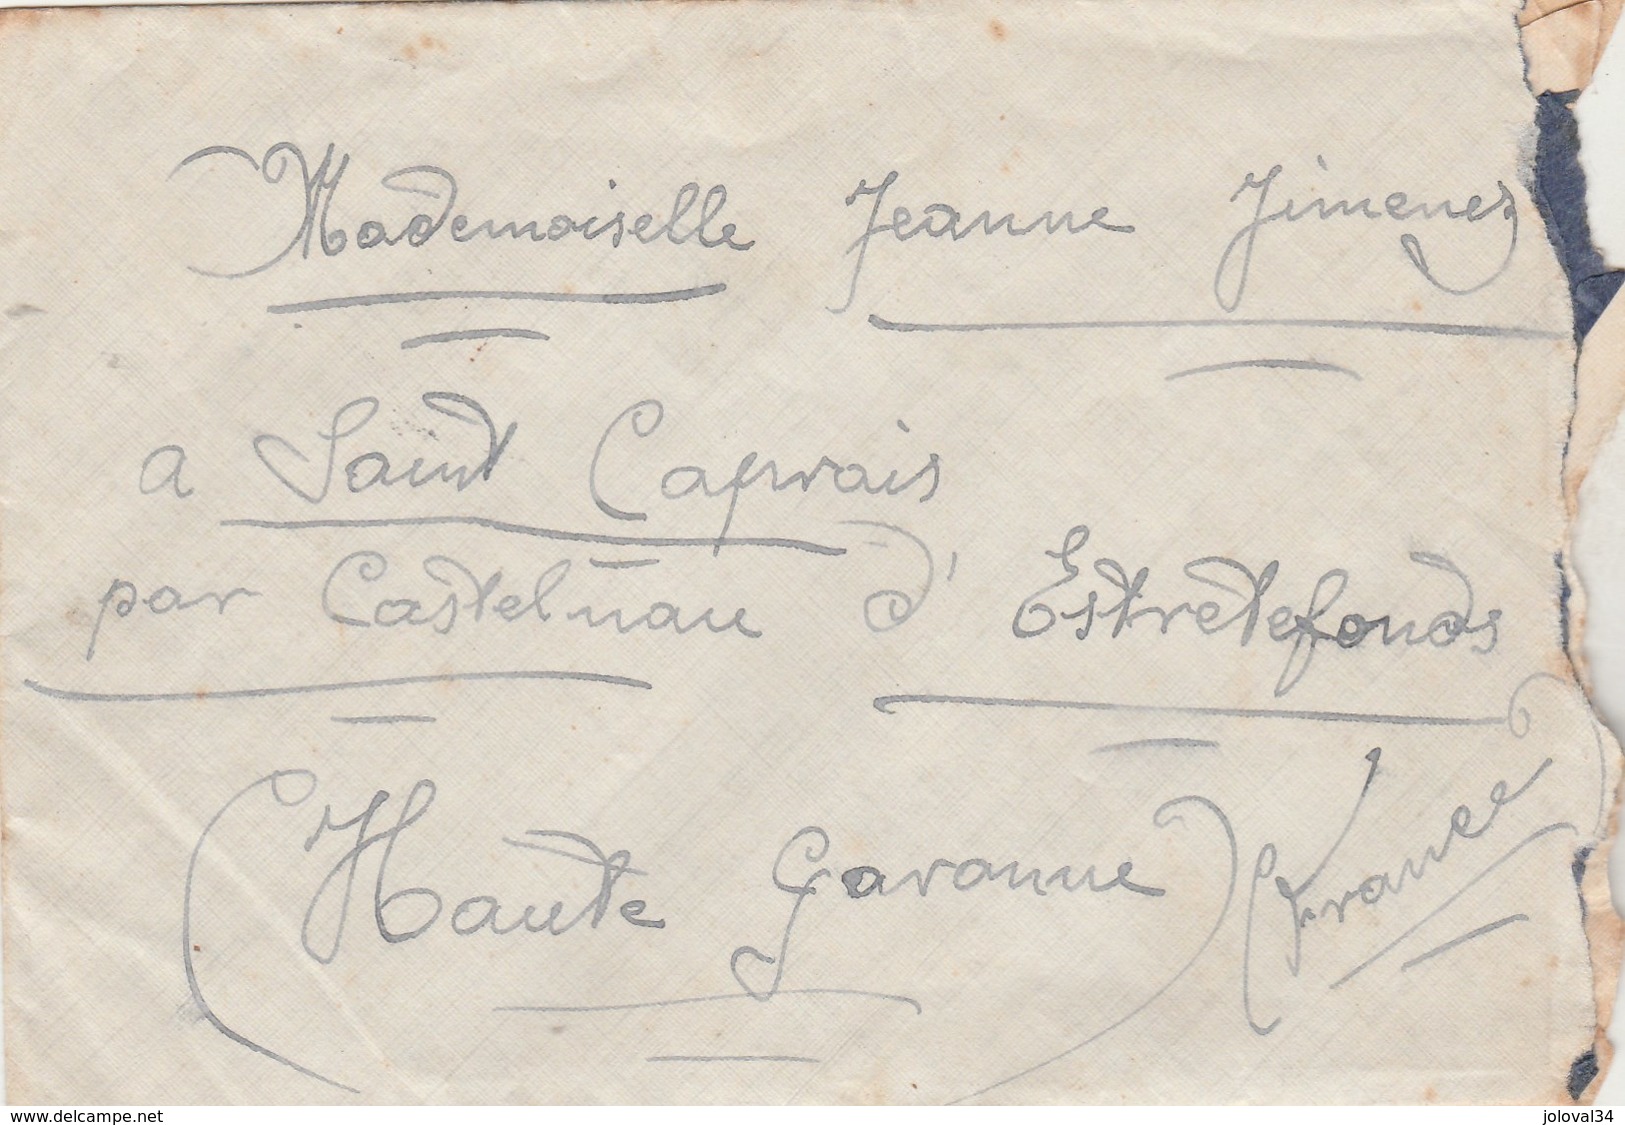 Mademoiselle Jeanne Jimenez
a Saint Caprais
par Castelnau d'Estretefonds
(Haute Garonne) (France)
www.delcampe.net
joloval34